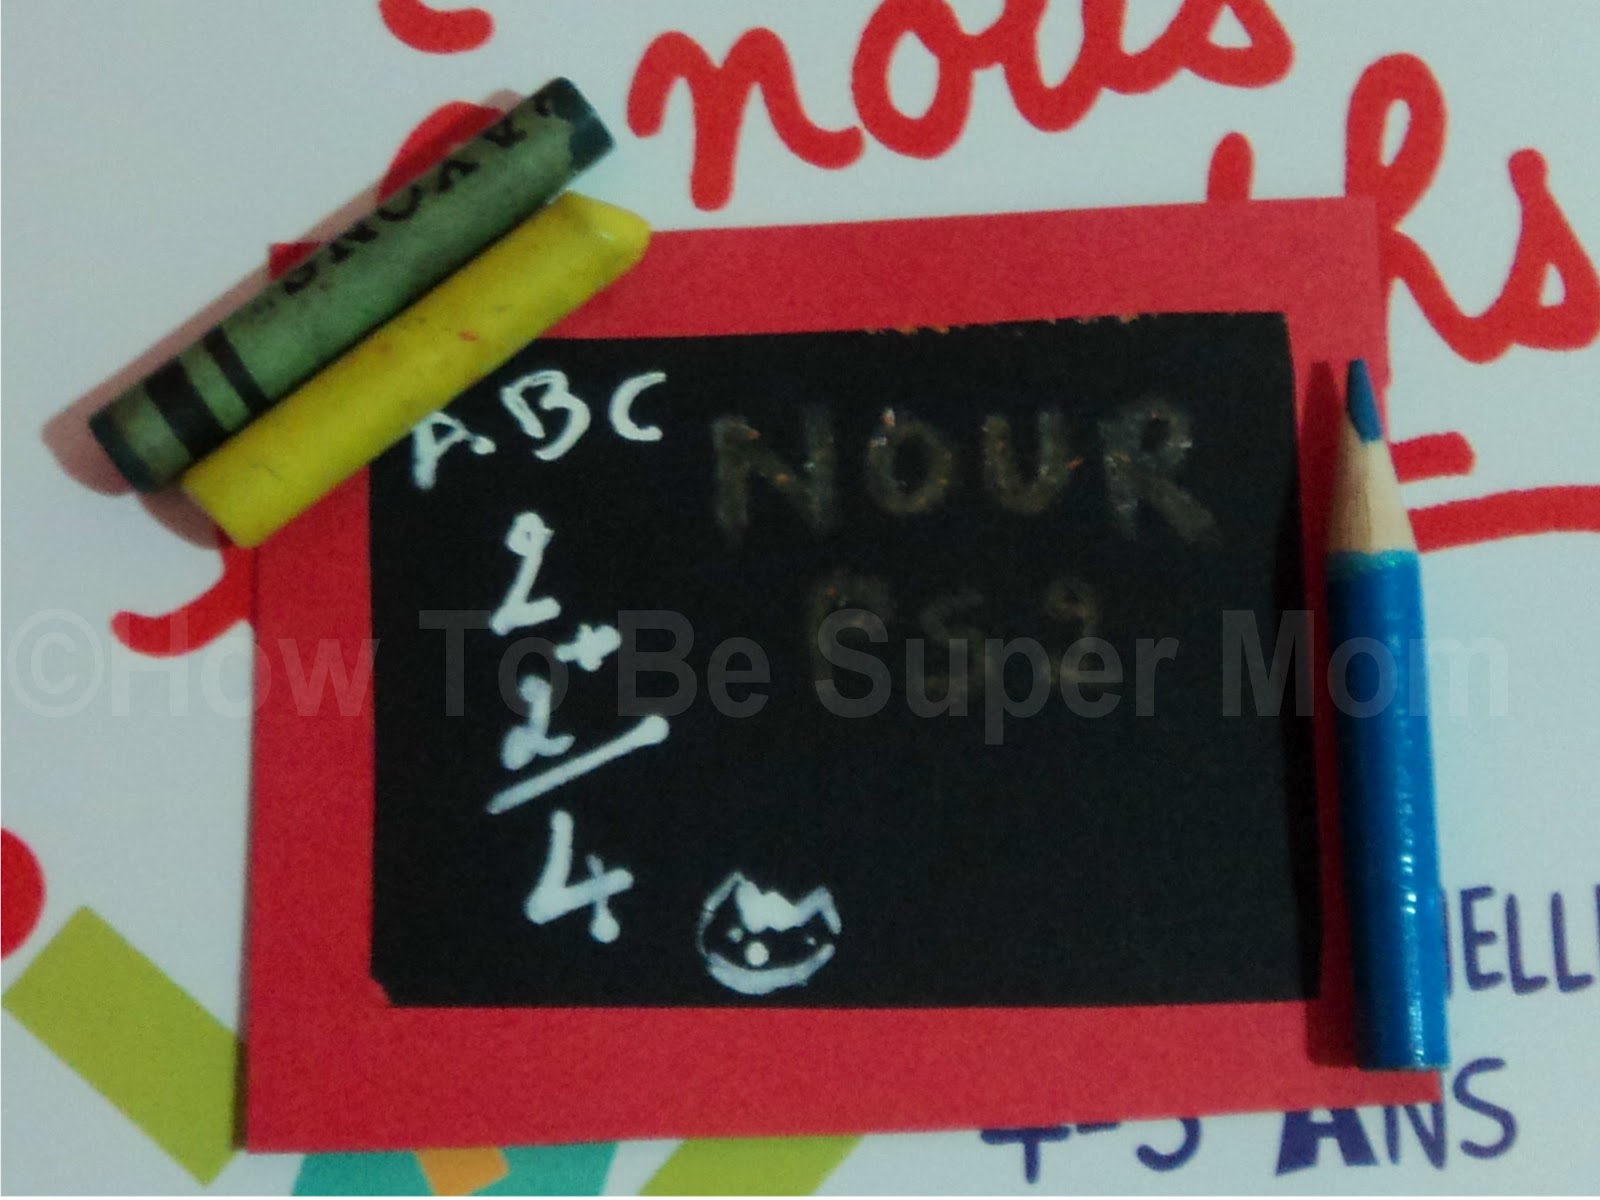 nous
ABC
NOUR
PS2
2
+
2
4
©How To Be Super Mom
4-5 ANS